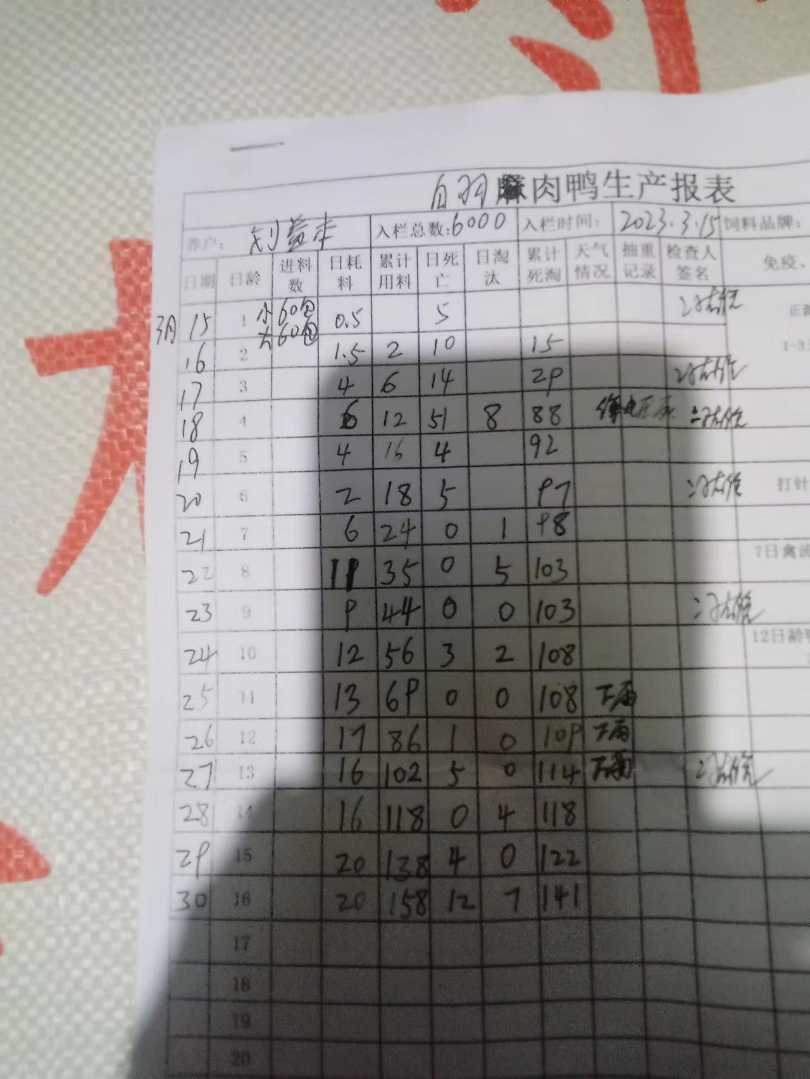 白羽肉鸭生产报表
养户： 入栏总数:6000 入栏时间: 2023.3.15 饲料品牌:
日期 日龄 进料数 日耗料 累计用料 日死亡 日淘汰 累计死淘 天气情况 抽重记录 检查人签名 免疫、
3月 15 1 小60包 大60包 0.5 5
16 2 1.5 2 10 15 1-3
17 3 4 6 14 29
18 4 6 12 51 8 88
19 5 4 16 4 92
20 6 2 18 5 97 打针
21 7 6 24 0 1 98
22 8 11 35 0 5 103 7日禽流
23 9 9 44 0 0 103
24 10 12 56 3 2 108 12日龄
25 11 13 69 0 0 108 下雨
26 12 17 86 1 0 109 下雨
27 13 16 102 5 0 114 下雨
28 14 16 118 0 4 118
29 15 20 138 4 0 122
30 16 20 158 12 7 141
17
18
19
20